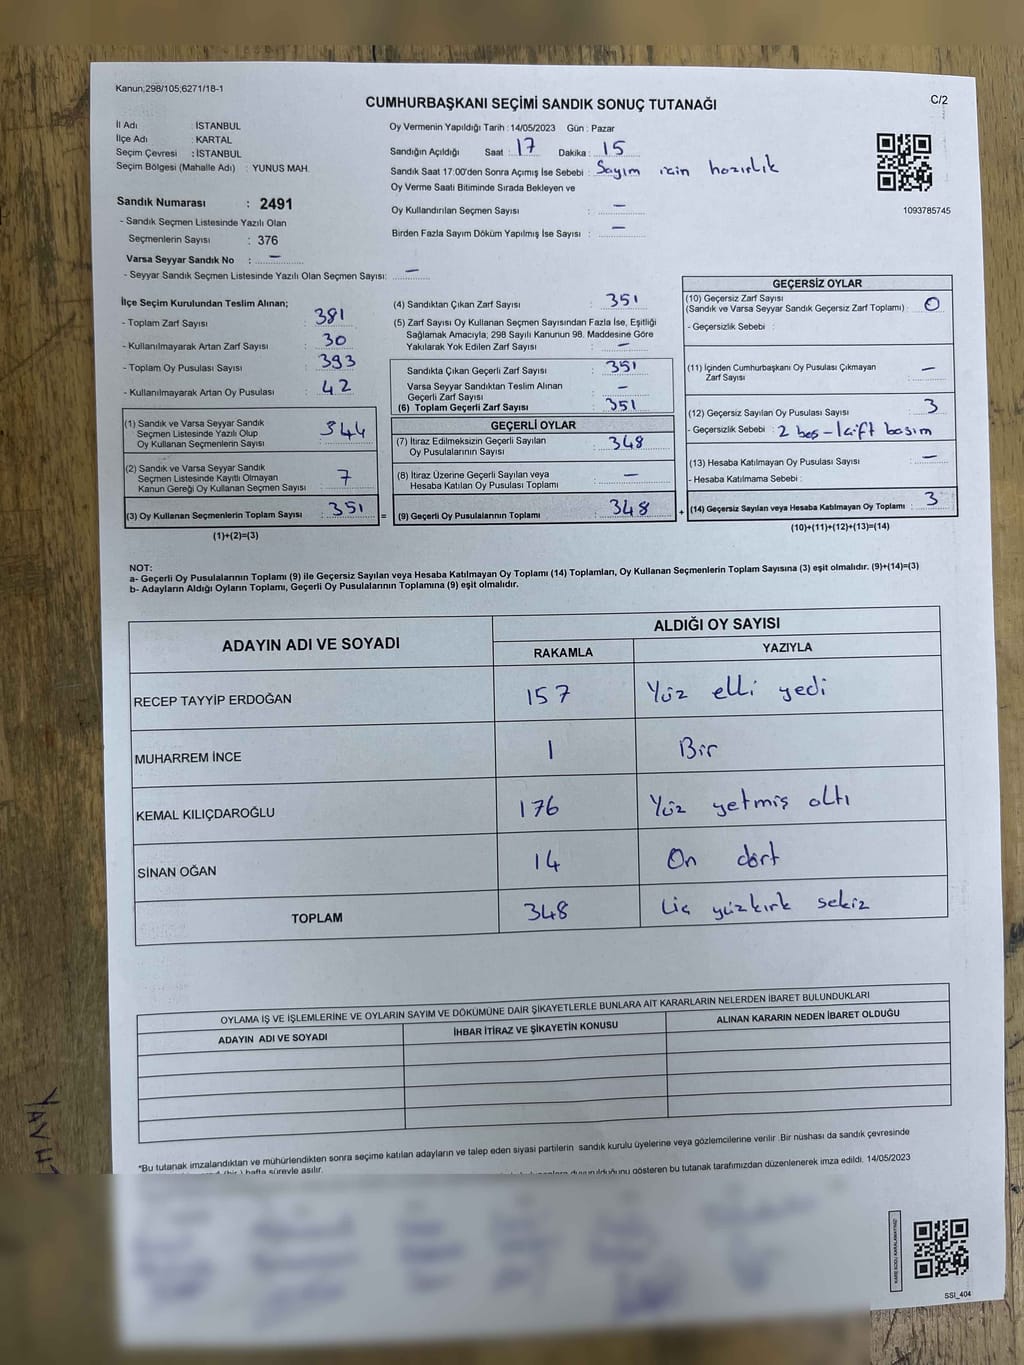 Kanun;298/105;6271/18-1
CUMHURBAŞKANI SEÇİMİ SANDIK SONUÇ TUTANAĞI
C/2
İl Adı : İSTANBUL
İlçe Adı : KARTAL
Seçim Çevresi : İSTANBUL
Seçim Bölgesi (Mahalle Adı) : YUNUS MAH.
Sandık Numarası : 2491
- Sandık Seçmen Listesinde Yazılı Olan
Seçmenlerin Sayısı : 376
Varsa Seyyar Sandık No : –
- Seyyar Sandık Seçmen Listesinde Yazılı Olan Seçmen Sayısı: –
Oy Vermenin Yapıldığı Tarih : 14/05/2023 Gün : Pazar
Sandığın Açıldığı Saat : 17 Dakika : 15
Sandık Saat 17.00'den Sonra Açımış İse Sebebi : Sayım için hazırlık
Oy Verme Saati Bitiminde Sırada Bekleyen ve
Oy Kullandırılan Seçmen Sayısı : –
Birden Fazla Sayım Döküm Yapılmış İse Sayısı : –
1093785745
İlçe Seçim Kurulundan Teslim Alınan;
- Toplam Zarf Sayısı : 381
- Kullanılmayarak Artan Zarf Sayısı : 30
- Toplam Oy Pusulası Sayısı : 393
- Kullanılmayarak Artan Oy Pusulası : 42
(1) Sandık ve Varsa Seyyar Sandık
Seçmen Listesinde Yazılı Olup
Oy Kullanan Seçmenlerin Sayısı : 344
(2) Sandık ve Varsa Seyyar Sandık
Seçmen Listesinde Kayıtlı Olmayan
Kanun Gereği Oy Kullanan Seçmen Sayısı : 7
(3) Oy Kullanan Seçmenlerin Toplam Sayısı : 351 =
(1)+(2)=(3)
(4) Sandıktan Çıkan Zarf Sayısı : 351
(5) Zarf Sayısı Oy Kullanan Seçmen Sayısından Fazla İse, Eşitliği
Sağlamak Amacıyla; 298 Sayılı Kanunun 98. Maddesine Göre
Yakılarak Yok Edilen Zarf Sayısı : –
Sandıkta Çıkan Geçerli Zarf Sayısı : 351
Varsa Seyyar Sandıktan Teslim Alınan
Geçerli Zarf Sayısı : –
(6) Toplam Geçerli Zarf Sayısı : 351
GEÇERLİ OYLAR
(7) İtiraz Edilmeksizin Geçerli Sayılan
Oy Pusulalarının Sayısı : 348
(8) İtiraz Üzerine Geçerli Sayılan veya
Hesaba Katılan Oy Pusulası Toplamı : –
(9) Geçerli Oy Pusulalarının Toplamı : 348 +
GEÇERSİZ OYLAR
(10) Geçersiz Zarf Sayısı
(Sandık ve Varsa Seyyar Sandık Geçersiz Zarf Toplamı) : 0
- Geçersizlik Sebebi :
(11) İçinden Cumhurbaşkanı Oy Pusulası Çıkmayan
Zarf Sayısı : –
(12) Geçersiz Sayılan Oy Pusulası Sayısı : 3
- Geçersizlik Sebebi : 2 boş - 1 çift basım
(13) Hesaba Katılmayan Oy Pusulası Sayısı : –
- Hesaba Katılmama Sebebi :
(14) Geçersiz Sayılan veya Hesaba Katılmayan Oy Toplamı : 3
(10)+(11)+(12)+(13)=(14)
NOT:
a- Geçerli Oy Pusulalarının Toplamı (9) ile Geçersiz Sayılan veya Hesaba Katılmayan Oy Toplamı (14) Toplamları, Oy Kullanan Seçmenlerin Toplam Sayısına (3) eşit olmalıdır. (9)+(14)=(3)
b- Adayların Aldığı Oyların Toplamı, Geçerli Oy Pusulalarının Toplamına (9) eşit olmalıdır.
ADAYIN ADI VE SOYADI
ALDIĞI OY SAYISI
RAKAMLA YAZIYLA
RECEP TAYYİP ERDOĞAN 157 Yüz elli yedi
MUHARREM İNCE 1 Bir
KEMAL KILIÇDAROĞLU 176 Yüz yetmiş altı
SİNAN OĞAN 14 On dört
TOPLAM 348 Üç yüzkırk sekiz
OYLAMA İŞ VE İŞLEMLERİNE VE OYLARIN SAYIM VE DÖKÜMÜNE DAİR ŞİKAYETLERLE BUNLARA AİT KARARLARIN NELERDEN İBARET BULUNDUKLARI
ADAYIN ADI VE SOYADI İHBAR İTİRAZ VE ŞİKAYETİN KONUSU ALINAN KARARIN NEDEN İBARET OLDUĞU
*Bu tutanak imzalandıktan ve mühürlendikten sonra seçime katılan adayların ve talep eden siyasi partilerin sandık kurulu üyelerine veya gözlemcilerine verilir .Bir nüshası da sandık çevresinde
(bir ) hafta süreyle asılır. duyurulduğunu gösteren bu tutanak tarafımızdan düzenlenerek imza edildi. 14/05/2023
SSI_404